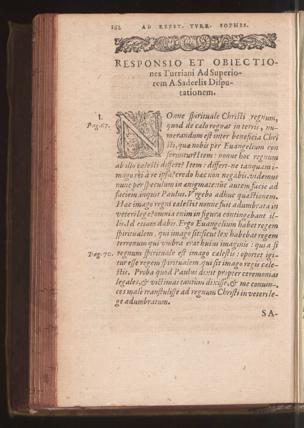 162 AD REPET. TVRR. SOPHIS.
RESPONSIO ET OBIECTIO-
nes Turriani Ad Superio-
rem A. Sadeelis Dispu-
tationem.
1.
Pag. 67.
NOnne spirituale Christi regnum,
quod de calo regnat in terris, nu-
merandum est inter beneficia Chri
sti, qua nobis per Euangelium con
feruntur? Item: nonne hoc regnum
ab illo cælesti differt? Item: differt-ne tanquam i-
mago rei à re ipsa? credo hac non negabis. videmus
nunc per speculum in anigmate: tūc autem facie ad
faciem, inquit Paulus. Vrgebo adhuc quæstionem.
Hac imago regni cælestis nonne fuit adumbrata in
veteri lege? omnia enim in figura contingebant il-
lis. Id etiam dabis. Ergo Euangelium habet regem
spiritualem, qui imago sit: sicut lex habebat regem
terrenum qui vmbra erat huius imaginis: quia si
Pag. 70.
regnum spirituale est imago cælestis: oportet igi-
tur esse regem spiritualem, qui sit imago regis cæle-
stis. Proba quod Paulus dixit propter ceremonias
legales, & victimas tantùm dixisse, & me conuin-
ces malè transtulisse ad regnum Christi in veteri le-
ge adumbratum.
SA-